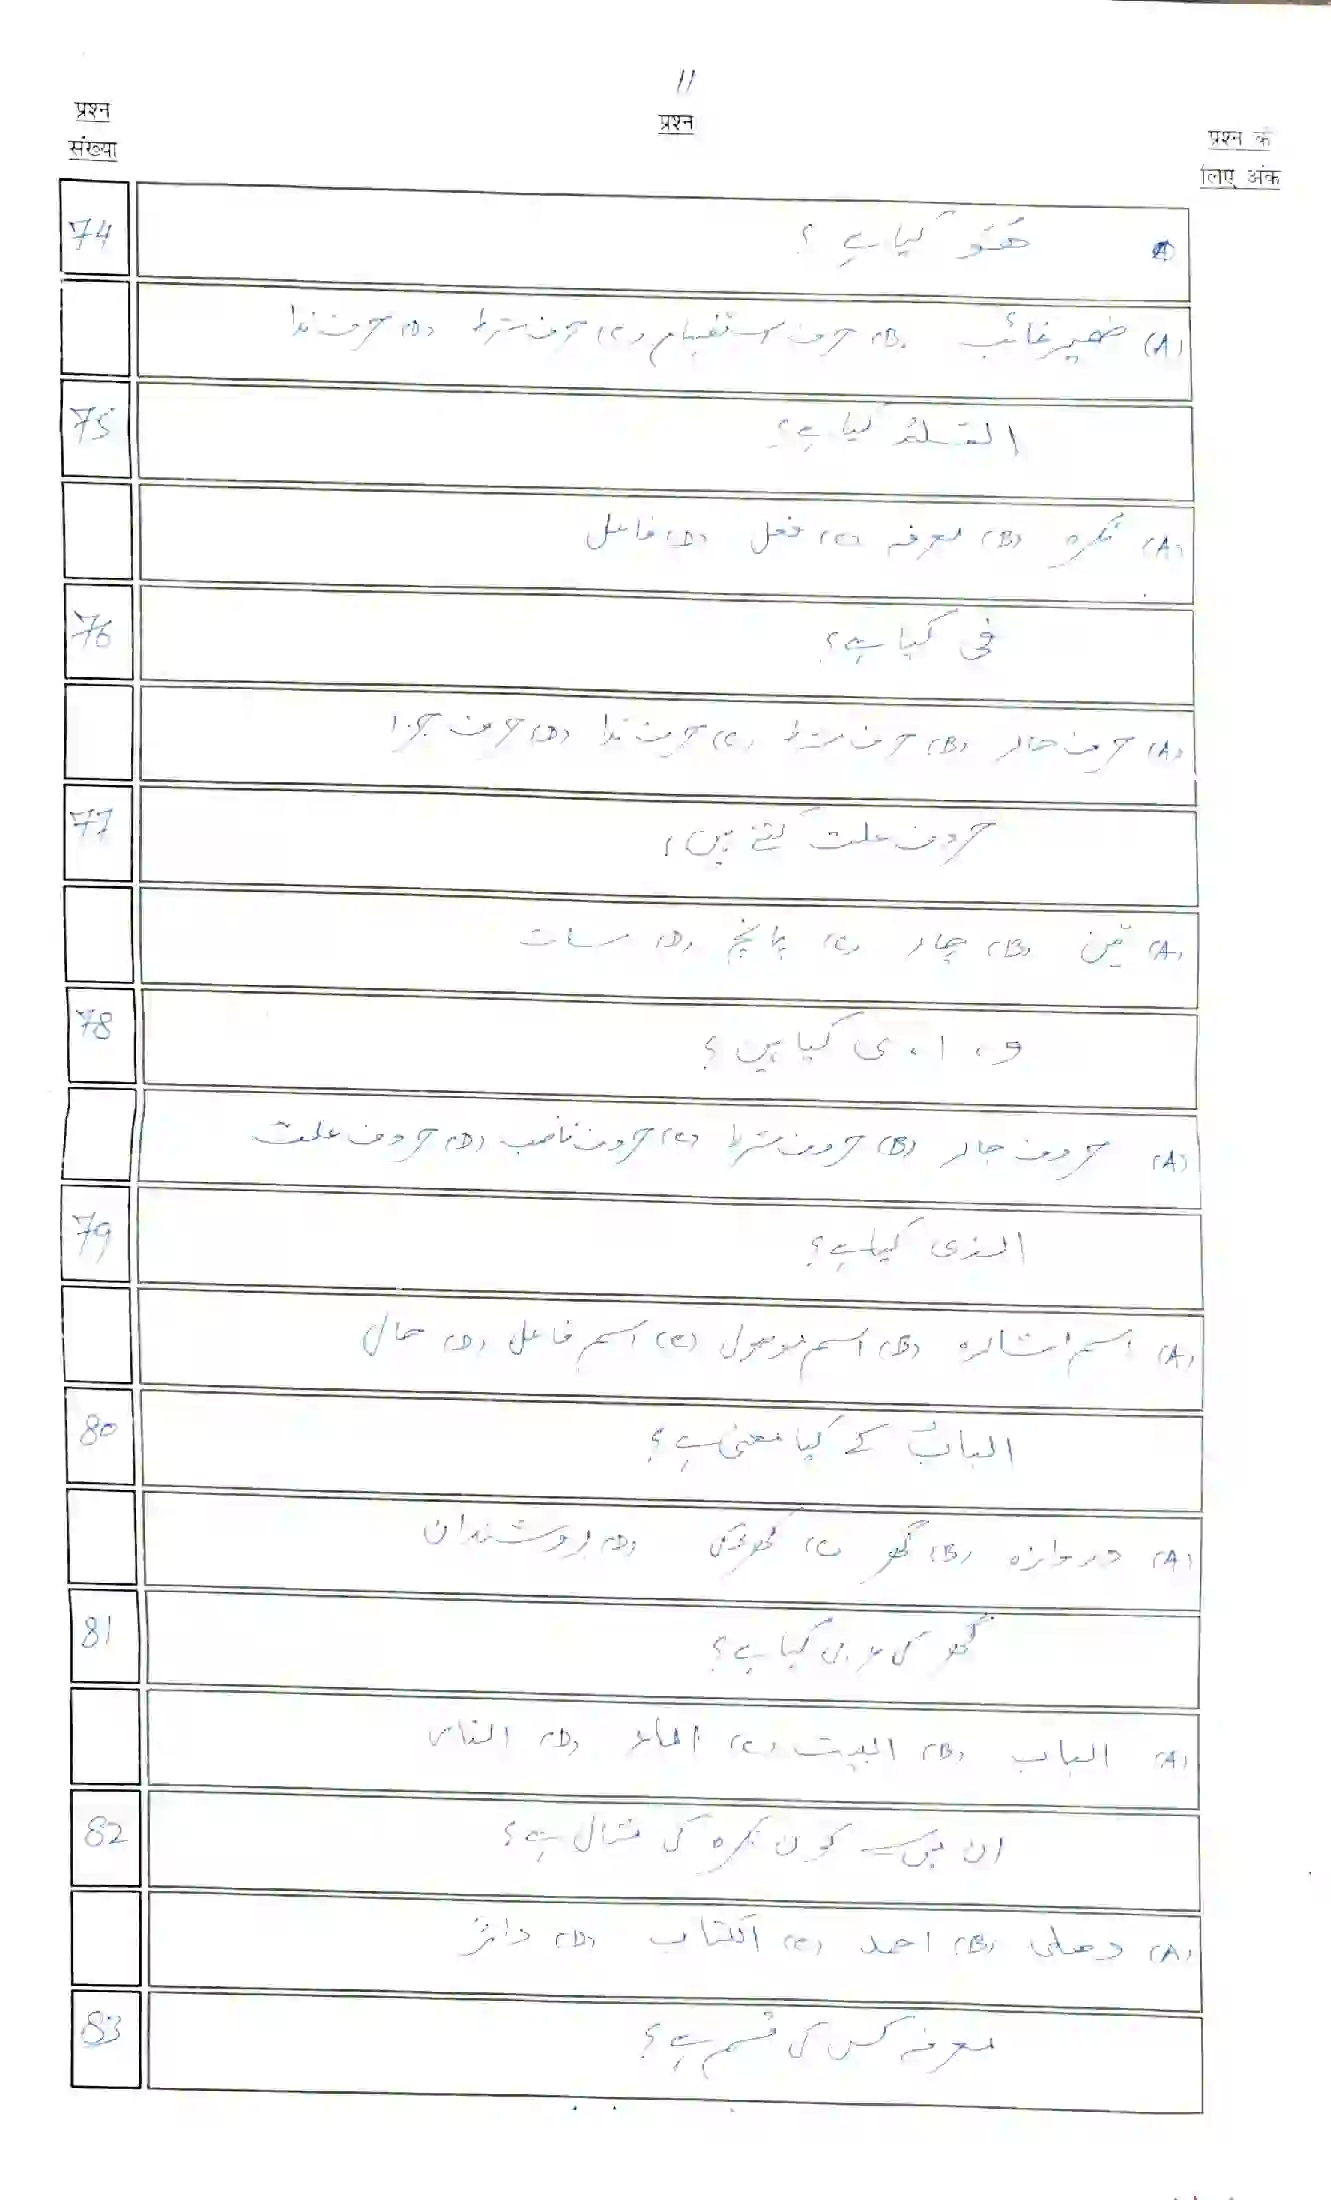 11
प्रश्न संख्या
प्रश्न
प्रश्न के लिए अंक
74
ھُوَ کیا ہے ؟
(A) ضمیر غائب (B) حرف استفہام (C) حرف شرط (D) حرف ندا
75
القلمُ کیا ہے؟
(A) نکرہ (B) معرفہ (C) فعل (D) فاعل
76
فی کیا ہے؟
(A) حرف جار (B) حرف شرط (C) حرف ندا (D) حرف جزا
77
حروف علت کتنے ہیں؟
(A) تین (B) چار (C) پانچ (D) سات
78
و ، ا ، ی کیا ہیں ؟
(A) حروف جار (B) حروف شرط (C) حروف ناصب (D) حروف علت
79
الذی کیا ہے؟
(A) اسم اشارہ (B) اسم موصول (C) اسم فاعل (D) حال
80
البابُ کے کیا معنی ہے؟
(A) دروازہ (B) گھر (C) کھڑکی (D) روشندان
81
گھر کی عربی کیا ہے؟
(A) الباب (B) البیت (C) الماء (D) النار
82
ان میں سے کون نکرہ کی مثال ہے؟
(A) دھلی (B) احمد (C) الکتاب (D)
83
معرفہ کس کی قسم ہے؟